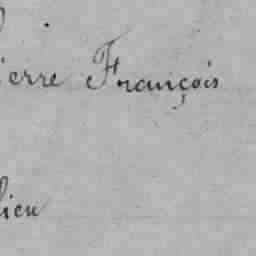 ierre François
lieu